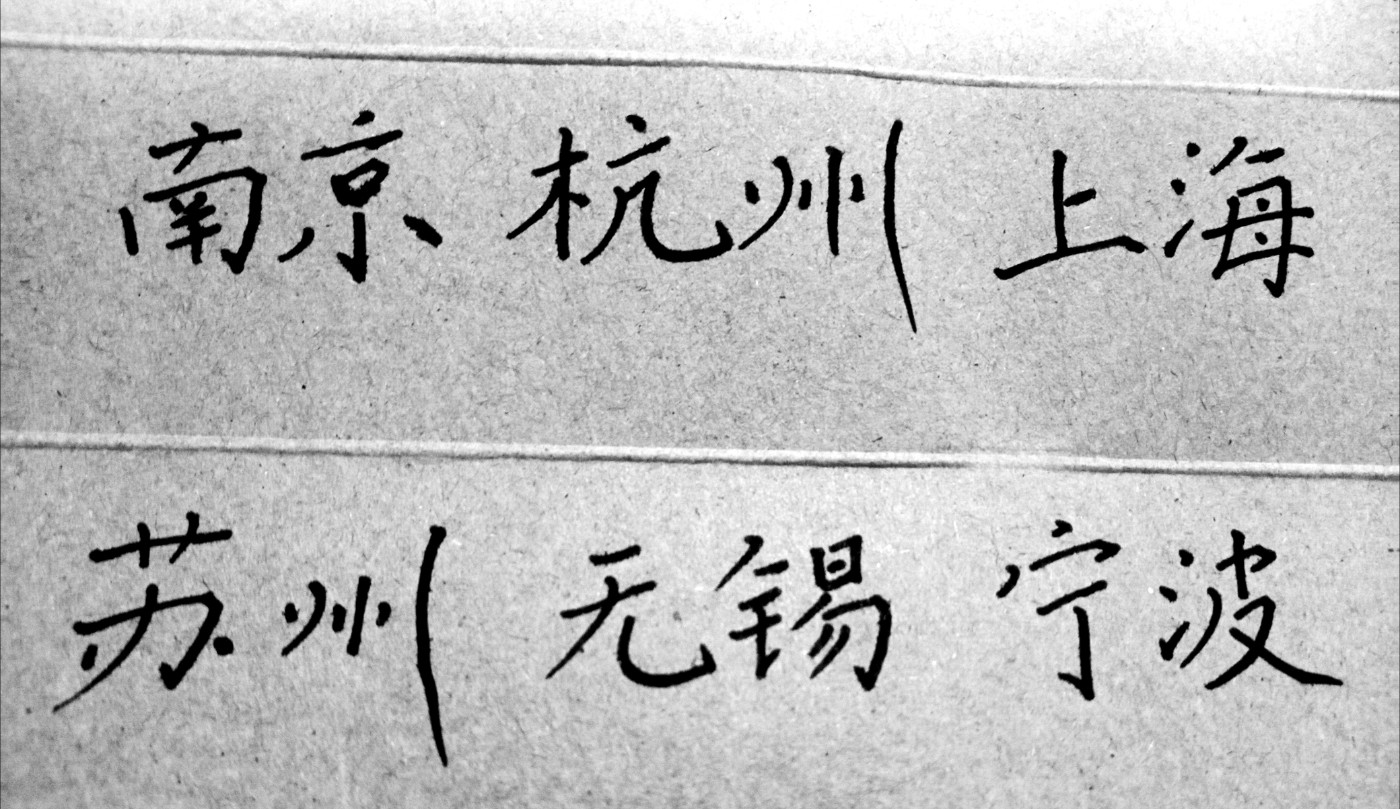 南京 杭州 上海
苏州 无锡 宁波